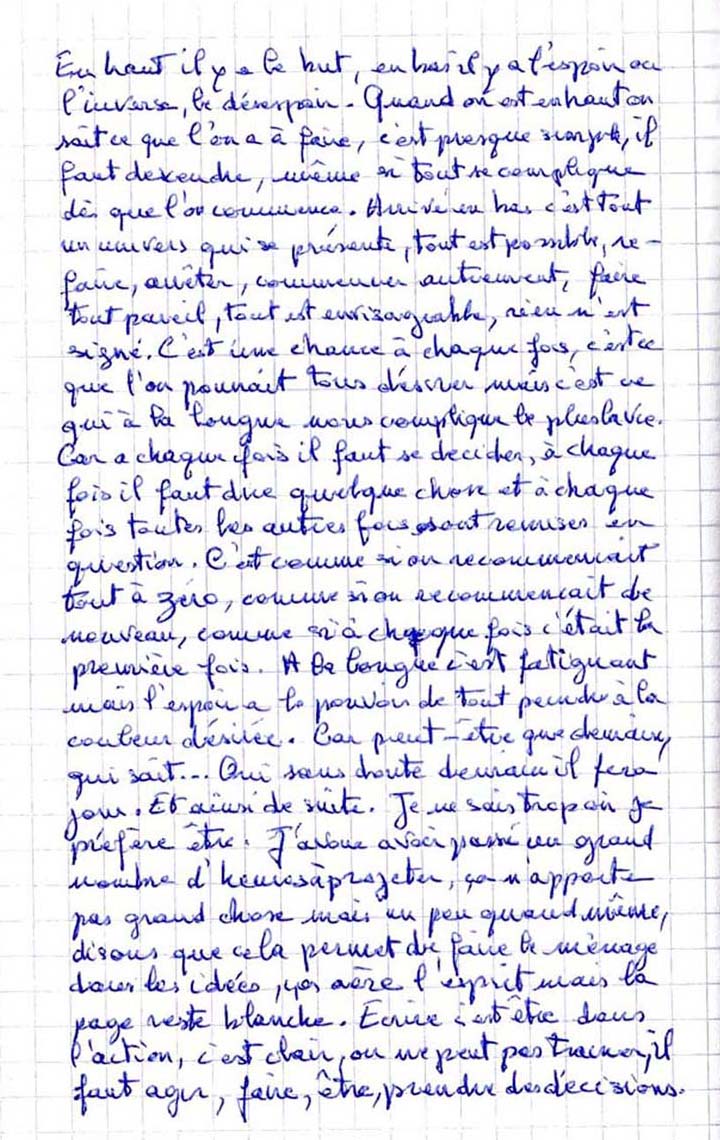 En haut il y a le but, en bas il y a l'espoir ou
l'inverse, le désespoir. Quand on est en haut on
sait ce que l'on a à faire, c'est presque simple, il
faut descendre, même si tout se complique
dès que l'on commence. Arrivé en bas c'est tout
un univers qui se présente, tout est possible, re-
faire, arrêter, commencer autrement, faire
tout pareil, tout est envisageable, rien n'est
signé. C'est une chance à chaque fois, c'est ce
que l'on pourrait tous désirer mais c'est ce
qui à la longue nous complique le plus la vie.
Car a chaque fois il faut se decider, à chaque
fois il faut dire quelque chose et à chaque
fois toutes les autres fois sont remises en
question. C'est comme si on recommencait
tout à zéro, comme si on recommencait de
nouveau, comme si à chaque fois c'était la
première fois. A la longue c'est fatiguant
mais l'espoir a le pouvoir de tout peindre à la
couleur désirée. Car peut-être que demain,
qui sait... Oui sans doute demain il fera
jour. Et ainsi de suite. Je ne sais trop où je
préfère être. J'avoue avoir passé un grand
nombre d'heures à projeter, ça n'apporte
pas grand chose mais un peu quand même,
disons que cela permet de faire le ménage
dans les idées, ça aère l'esprit mais la
page reste blanche. Ecrire c'est être dans
l'action, c'est clair, on ne peut pas tracer, il
faut agir, faire, être, prendre des décisions.